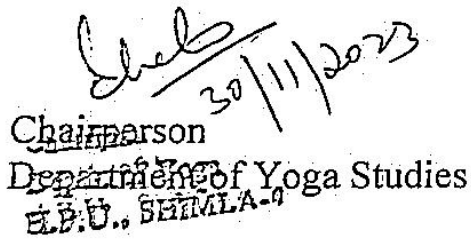 30/11/2023
Chairperson
Department of Yoga Studies
H.P.U., SHIMLA-